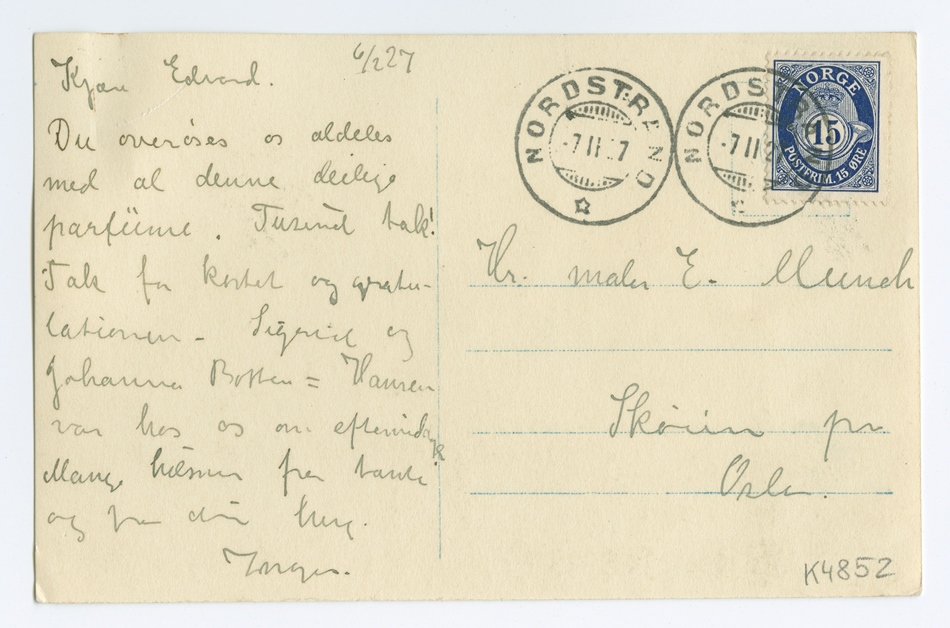 6/2 27
Kjære Edvard.
Du overøses os aldeles
med al denne deilige
parfüme. Tusend tak!
Tak for kortet og gratu-
lationen - Sigrid og
Johanna Botten = Hansen
var hos os om eftermidag
Mange hilsener fra tante
og fra din
Inger.
NORDSTRAND
-7 II 27
NORDSTRAND
-7 II 27
NORGE
15
POSTFRIM. 15 ØRE
Hr. maler E. Munch
Skøien pr
Oslo.
K4852